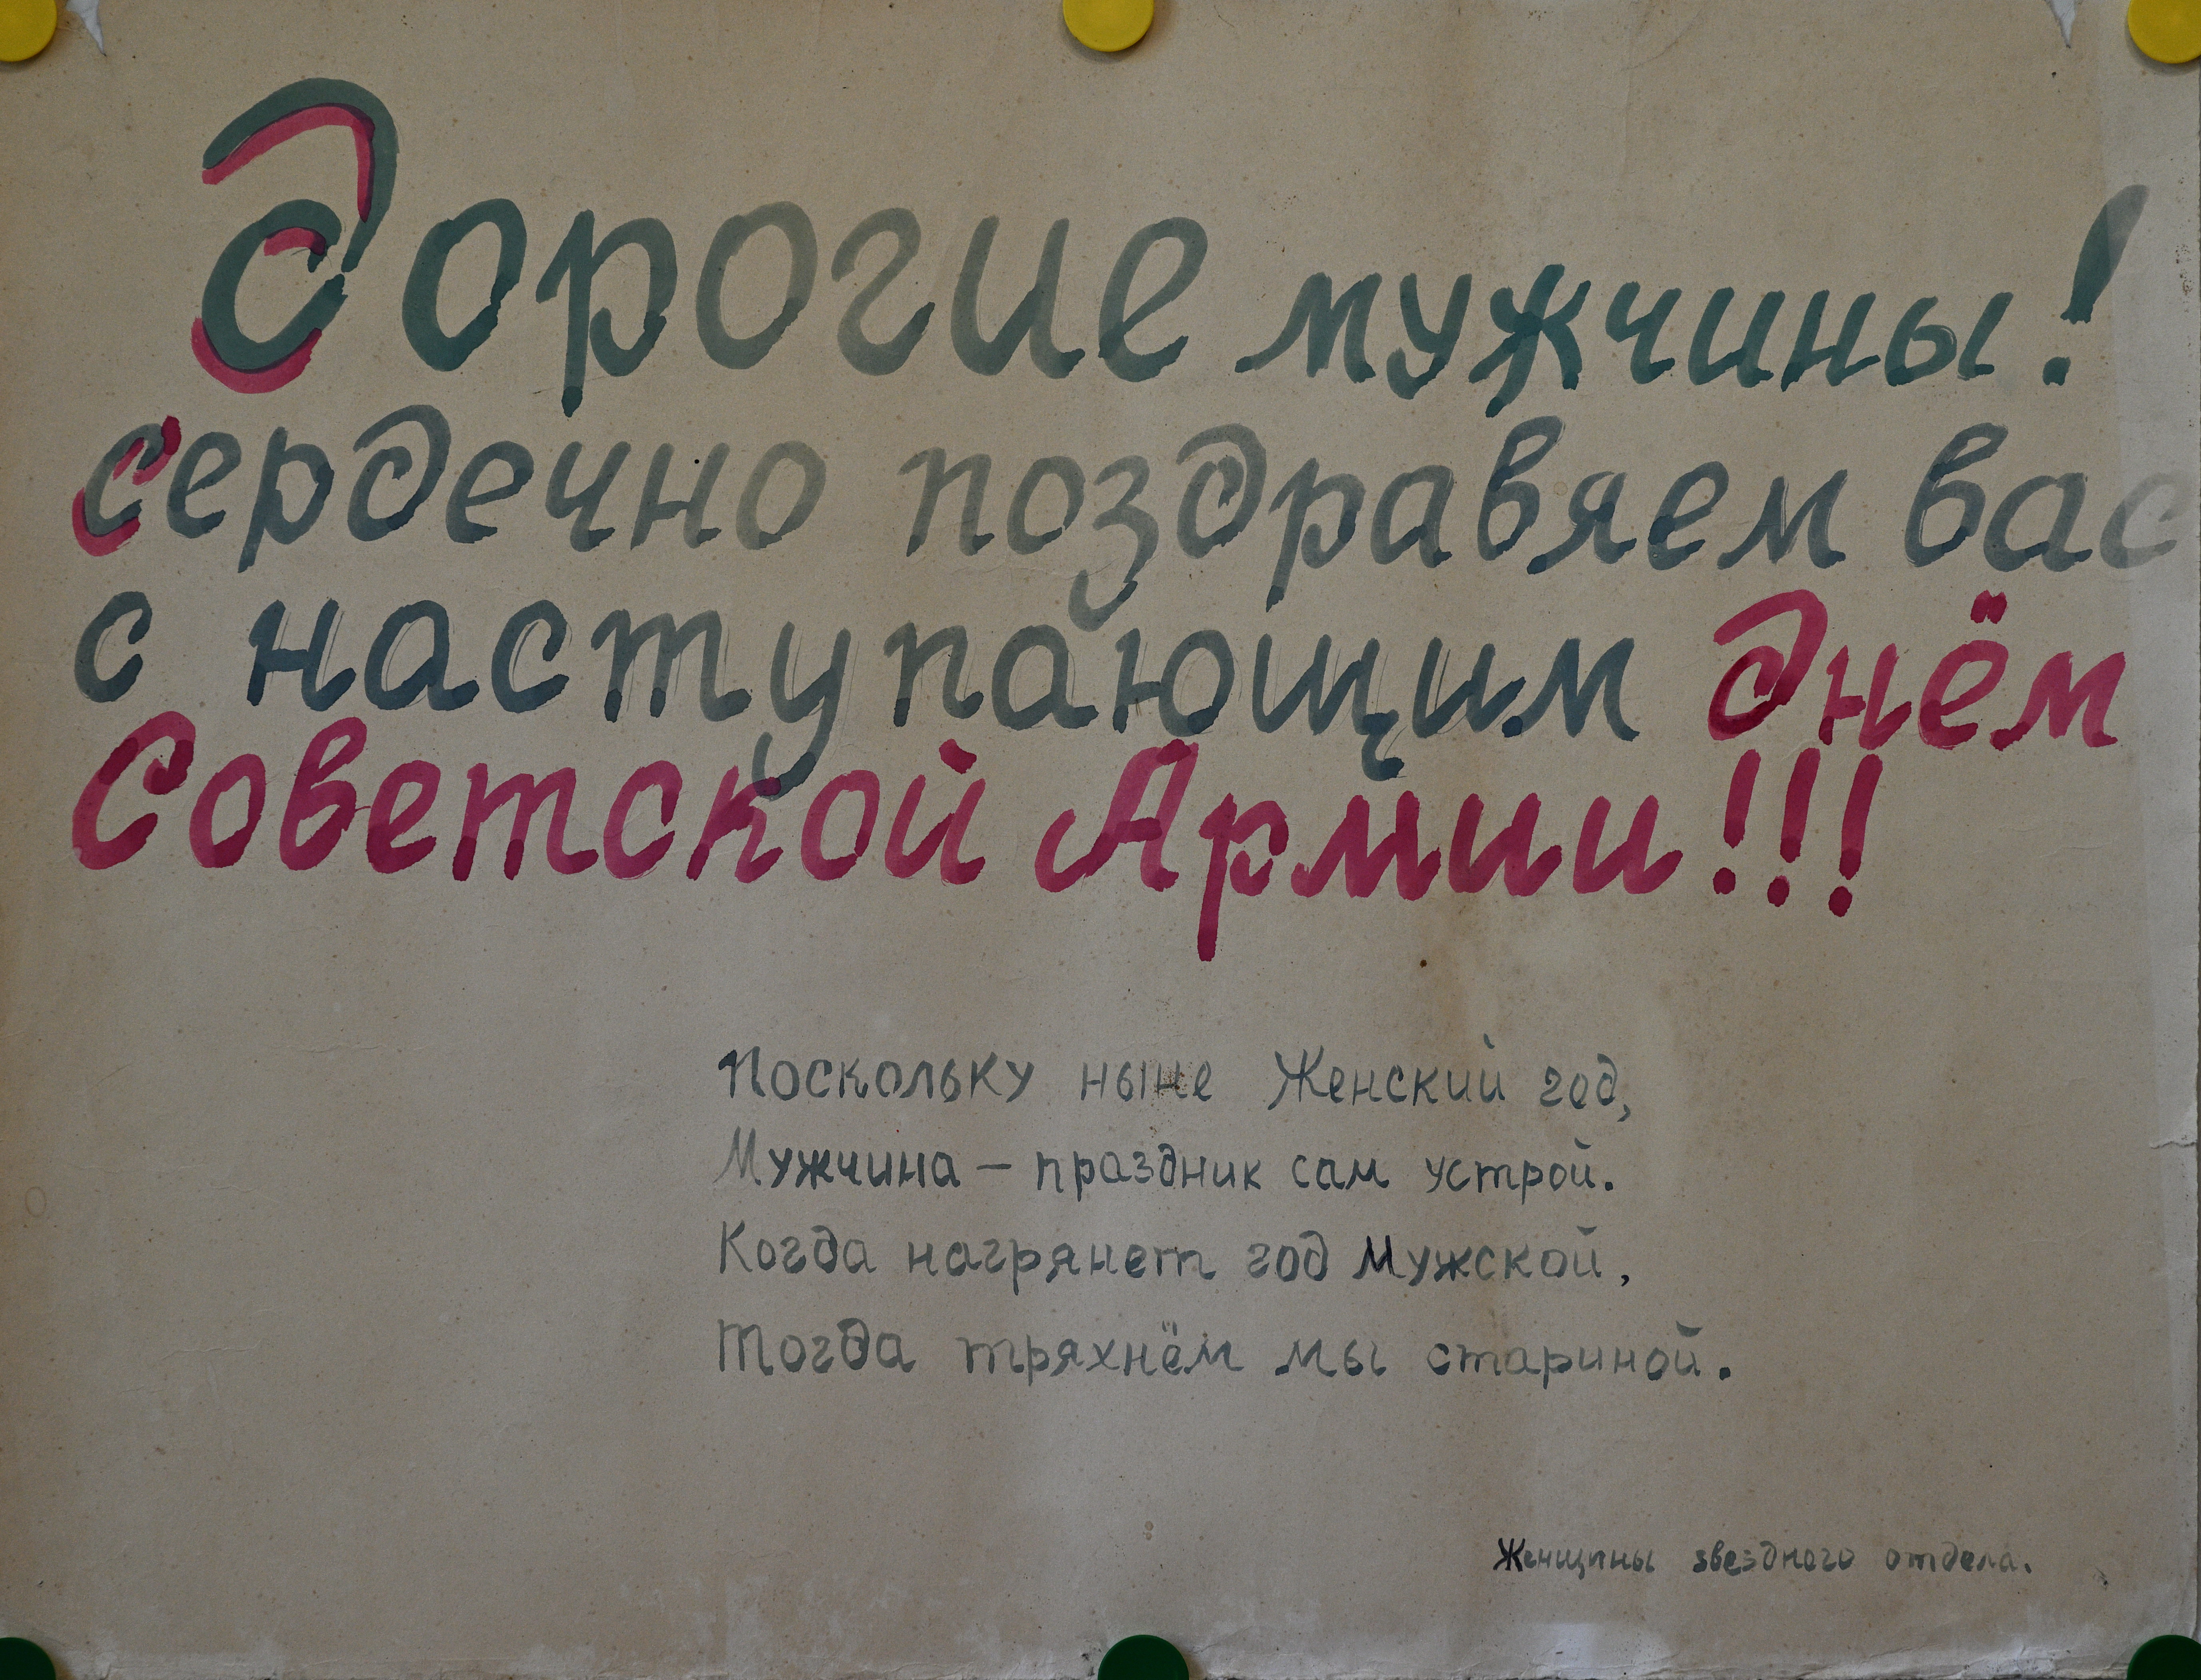 Дорогие мужчины!
сердечно поздравяем вас
с наступающим Днём
Советской Армии!!!
Поскольку ныне Женский год,
Мужчина – праздник сам устрой.
Когда нагрянет год Мужской,
Тогда тряхнём мы стариной.
Женщины звездного отдела.